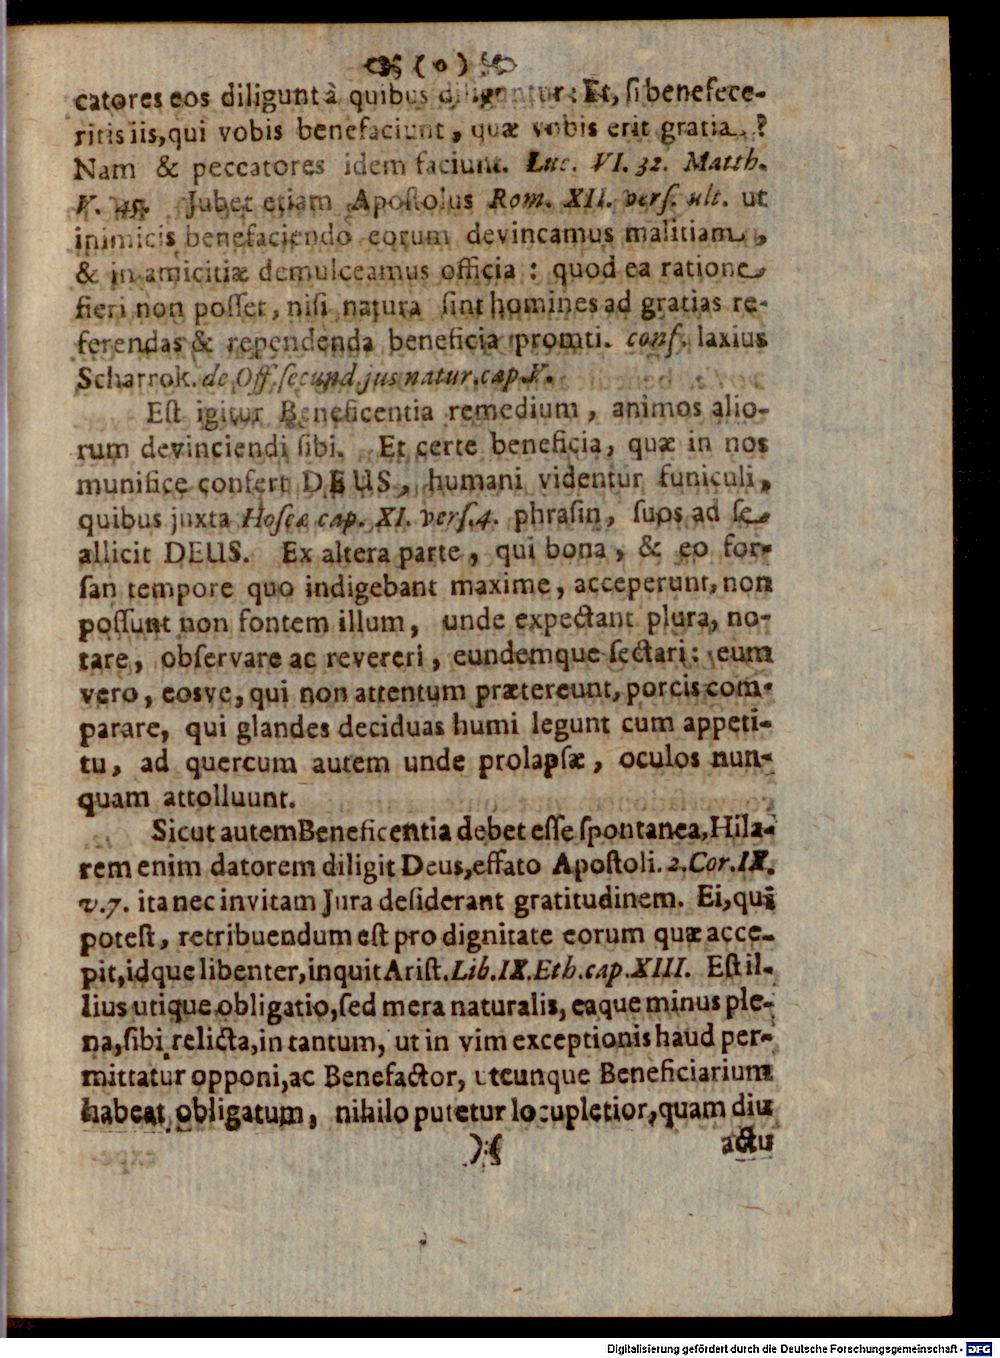 ( o )
catores eos diligunt à quibus diliguntur: Et, ſi benefece-
ritis iis, qui vobis benefaciunt, quæ vobis erit gratia?
Nam & peccatores idem faciunt. Luc. VI. 32. Matth.
V. 45. Jubet etiam Apoſtolus Rom. XII. verſ. ult. ut
inimicis benefaciendo eorum devincamus malitiam,
& in amicitiæ demulceamus officia: quod ea ratione
fieri non poſſet, niſi natura ſint homines ad gratias re-
ferendas & rependenda beneficia promti. conf. laxius
Scharrok. de Off. ſecund. jus natur. cap. V.
Eſt igitur Beneficentia remedium, animos alio-
rum devinciendi ſibi. Et certe beneficia, quæ in nos
munifice confert DEUS, humani videntur funiculi,
quibus juxta Hoſeæ cap. XI. verſ. 4. phraſin, ſuos ad ſe
allicit DEUS. Ex altera parte, qui bona, & eo for-
ſan tempore quo indigebant maxime, acceperunt, non
poſſunt non fontem illum, unde expectant plura, no-
tare, obſervare ac revereri, eundemque ſectari: eum
vero, eosve, qui non attentum prætereunt, porcis com-
parare, qui glandes deciduas humi legunt cum appeti-
tu, ad quercum autem unde prolapſæ, oculos nun-
quam attolluunt.
Sicut autem Beneficentia debet eſſe ſpontanea, Hila-
rem enim datorem diligit Deus, effato Apoſtoli. 2. Cor. IX.
v. 7. ita nec invitam Jura deſiderant gratitudinem. Ei, qui
poteſt, retribuendum eſt pro dignitate eorum quæ acce-
pit, idque libenter, inquit Ariſt. Lib. IX. Eth. cap. XIII. Eſt il-
lius utique obligatio, ſed mera naturalis, eaque minus ple-
na, ſibi relicta, in tantum, ut in vim exceptionis haud per-
mittatur opponi, ac Benefactor, utcunque Beneficiarium
habeat obligatum, nihilo putetur locupletior, quam diu
)( actu
Digitalisierung gefördert durch die Deutsche Forschungsgemeinschaft - DFG